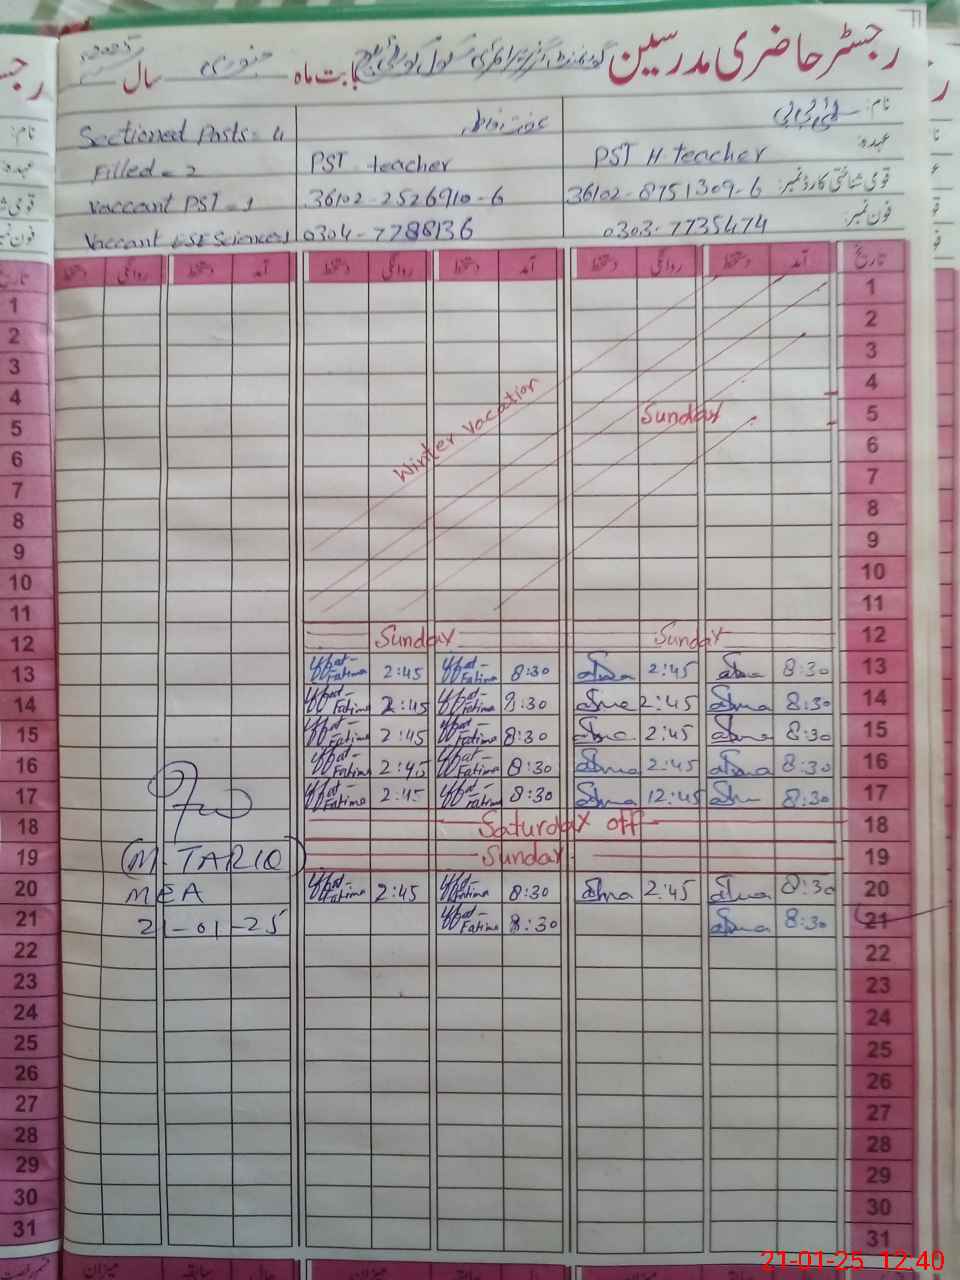 رجسٹر حاضری مدرسین گورنمنٹ گرلز پرائمری سکول بابت ماہ جنوری سال 2025
نام:
عہدہ: PST H. teacher PST teacher
قومی شناختی کارڈ نمبر: 36102-8751309-6 36102-2526910-6
فون نمبر: 0303-7735474 0304-7788136
Sectioned Posts = 4
Filled = 2
Vaccant PST = 1
Vaccant ESE Science 1
تاریخ آمد دستخط روانگی دستخط آمد دستخط روانگی دستخط آمد دستخط روانگی دستخط
1
2
3
4
5 Sunday
6
7
8
9
10
11
Winter Vacation
12 Sunday Sunday
13 8:30 2:45 8:30 Iffat Fatima 2:45 Iffat Fatima
14 8:30 2:45 8:30 Iffat Fatima 2:45 Iffat Fatima
15 8:30 2:45 8:30 Iffat Fatima 2:45 Iffat Fatima
16 8:30 2:45 8:30 Iffat Fatima 2:45 Iffat Fatima
17 8:30 12:45 8:30 Iffat Fatima 2:45 Iffat Fatima
18 Saturday off
19 Sunday
20 8:30 2:45 8:30 Iffat Fatima 2:45 Iffat Fatima
21 8:30 8:30 Iffat Fatima
22
23
24
25
26
27
28
29
30
31
(M. TARIQ)
MEA
21-01-25
21-01-25 12:40